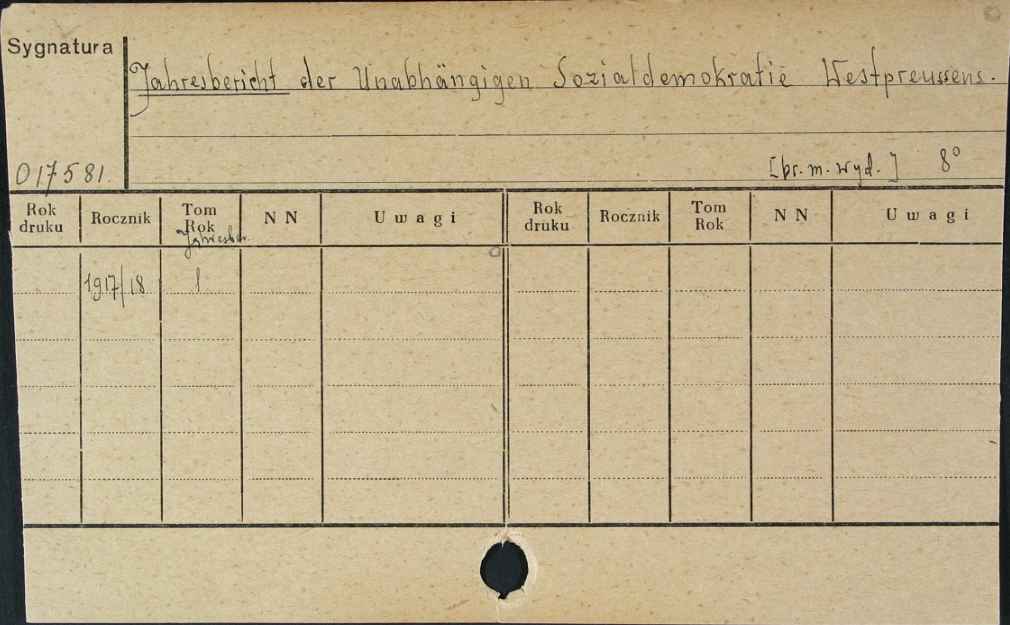 Sygnatura
Jahresbericht der Unabhängigen Sozialdemokratie Westpreussens.
017581.
[br. m. wyd.] 8°
Rok druku Rocznik Tom Rok N N Uwagi Rok druku Rocznik Tom Rok N N Uwagi
1917/18 1